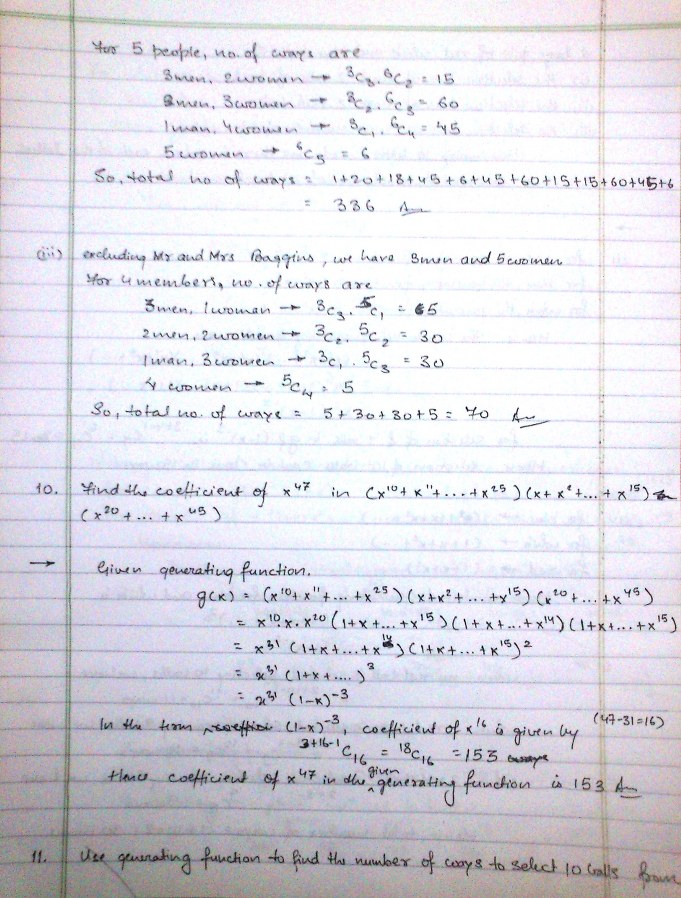 For 5 people, no. of ways are
3men, 2women → ³C₃.⁶C₂ = 15
2men, 3women → ³C₂.⁶C₃ = 60
1man, 4women → ³C₁.⁶C₄ = 45
5women → ⁶C₅ = 6
So, total no of ways = 1+20+18+45+6+45+60+15+15+60+45+6
= 336 Ans
(iii) excluding Mr and Mrs Baggins, we have 3men and 5women
For 4 members, no. of ways are
3men, 1women → ³C₃.⁵C₁ = 5
2men, 2women → ³C₂.⁵C₂ = 30
1man, 3women → ³C₁.⁵C₃ = 30
4 women → ⁵C₄ = 5
So, total no. of ways = 5+30+30+5 = 70 Ans
10. Find the coefficient of x⁴⁷ in (x¹⁰+x¹¹+....+x²⁵)(x+x²+...+x¹⁵)
(x²⁰+...+x⁴⁵)
→ Given generating function.
g(x) = (x¹⁰+x¹¹+...+x²⁵)(x+x²+...+x¹⁵)(x²⁰+...+x⁴⁵)
= x¹⁰.x.x²⁰(1+x+...+x¹⁵)(1+x+...+x¹⁴)(1+x+...+x¹⁵)
= x³¹(1+x+...+x¹⁴)(1+x+...+x¹⁵)²
= x³¹(1+x+....)³
= x³¹(1-x)⁻³
In the term (1-x)⁻³, coefficient of x¹⁶ is given by (47-31=16)
³⁺¹⁶⁻¹C₁₆ = ¹⁸C₁₆ = 153
Hence coefficient of x⁴⁷ in the given generating function is 153 Ans
11. Use generating function to find the number of ways to select 10 balls from